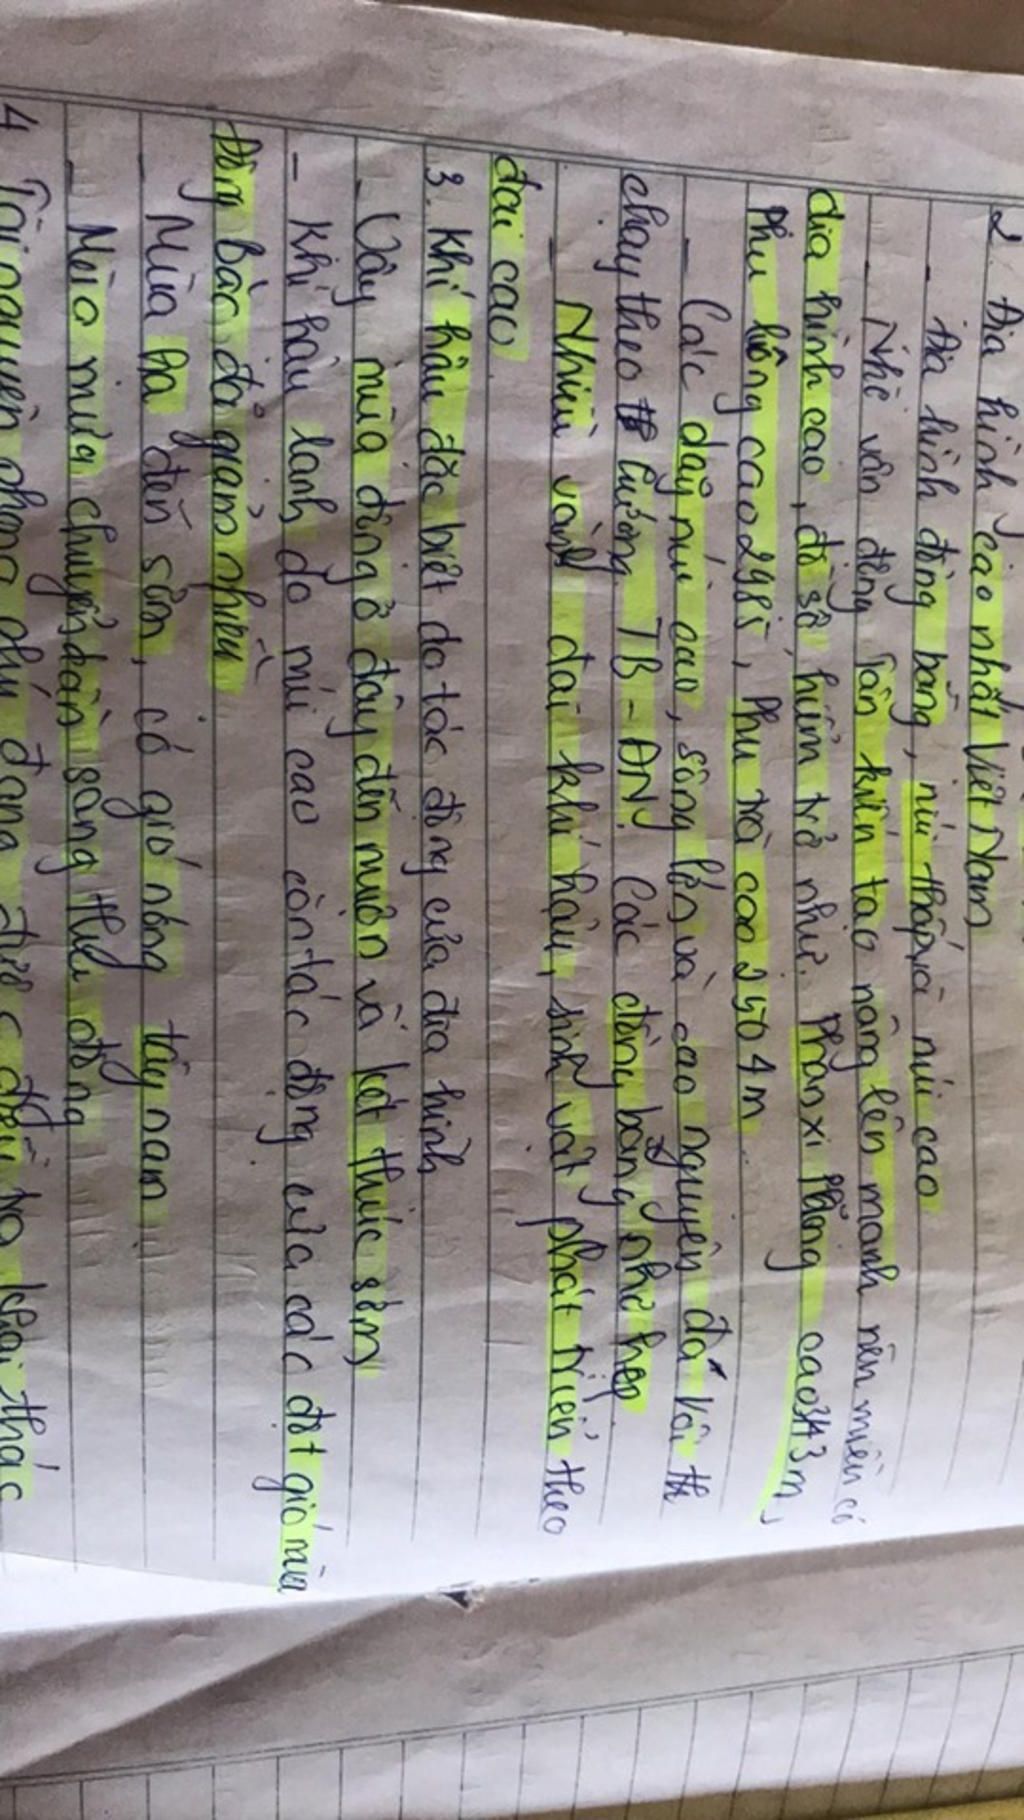 2. Địa hình cao nhất Việt Nam
- Địa hình đồng bằng, núi thấp và núi cao
- Nhờ vận động Tân kiến tạo nâng lên mạnh nên miền có
địa hình cao, đồ sộ, hiểm trở như: Phan xi Phăng cao 3143m,
Phu luông cao 2985, Phu trà cao 2504m
- Các dãy núi cao, sông lớn và cao nguyên đá vôi th
chạy theo hướng TB - ĐN. Các đồng bằng nhỏ hẹp
- Nhiều vành đai khí hậu, sinh vật phát triển theo
đai cao
3. Khí hậu đặc biệt do tác động của địa hình
- Vây mùa đông ở đây đến muộn và kết thúc sớm
- Khí hậu lạnh do núi cao còn tác động của các đợt gió mùa
Đông Bắc đã giảm nhiều
- Mùa hạ đến sớm, có gió nóng tây nam
- Mùa mưa chuyển dần sang thu đông
4 Tài nguyên phong phú đang được điều tra khai thác